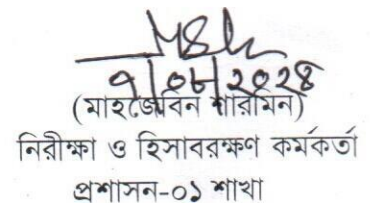 ৭/০৮/২০২৪
(মাহজেবিন শারমিন)
নিরীক্ষা ও হিসাবরক্ষণ কর্মকর্তা
প্রশাসন-০১ শাখা